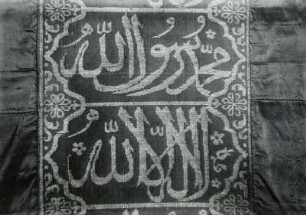 محمد رسول الله
لا اله الا الله